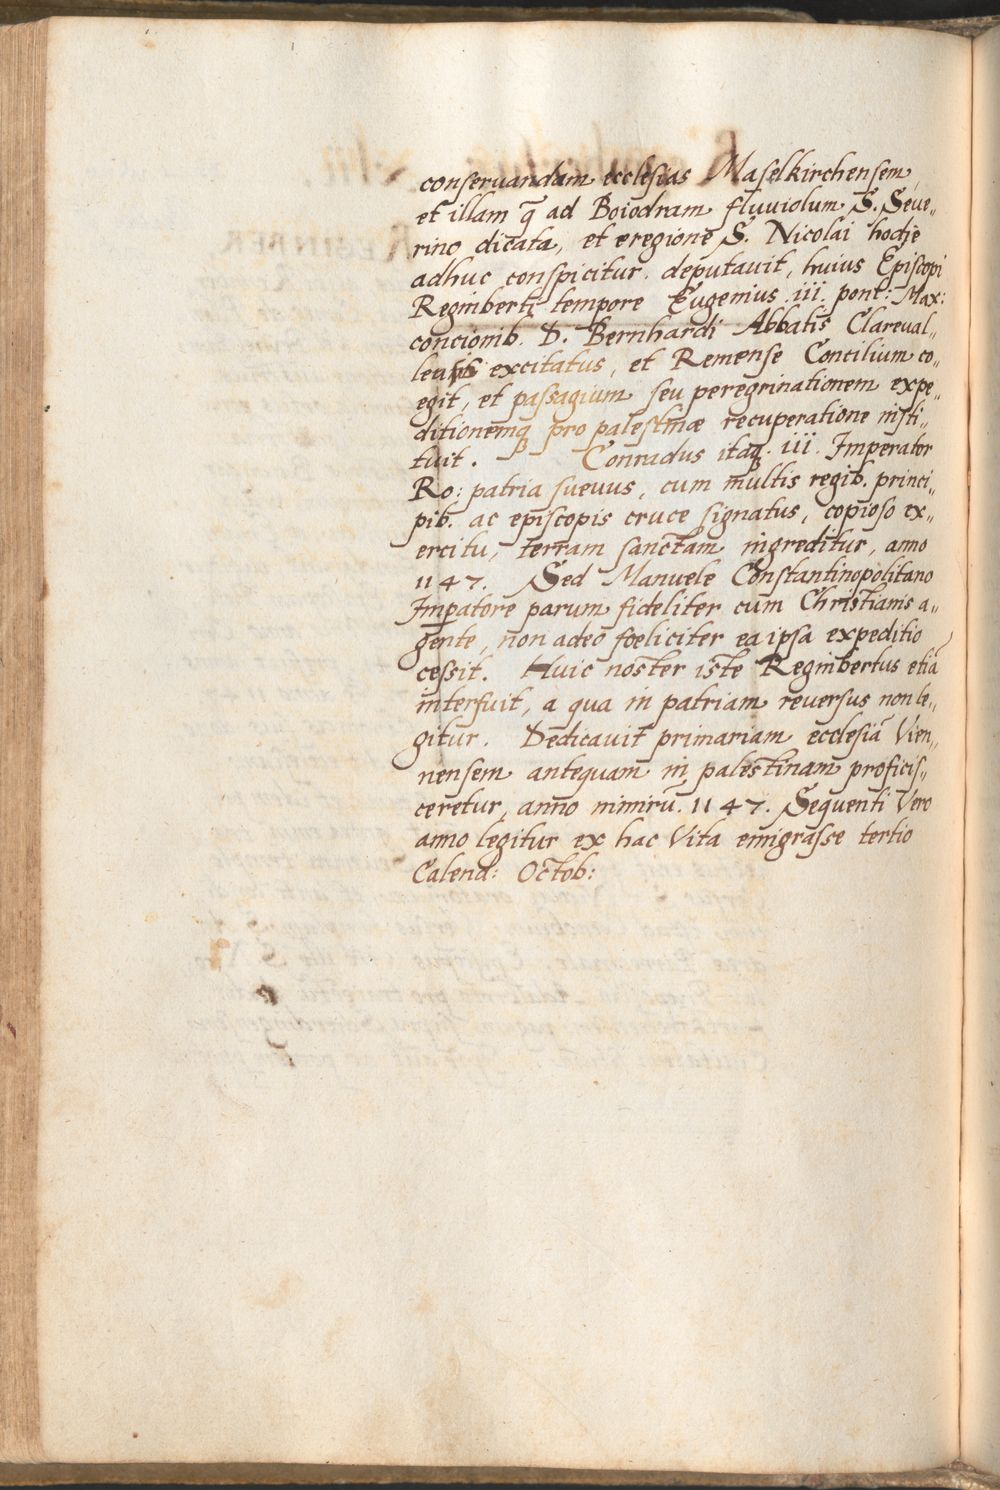 conseruandam ecclesias Maselkirchensem,
et illam q̃ ad Boiodram fluuiolum S. Seue„
rino dicata, et eregione S. Nicolai hodie
adhuc conspicitur. deputauit, huius Episcopi
Regimberti tempore Eugenius .iii. pont: Max:
concionib. D. Bernhardi Abbatis Clareual„
lensis excitatus, et Remense Concilium co„
egit, et passagium seu peregrinationem expe„
ditionemq pro palestinæ recuperatione insti„
tuit. Conradus itaq. iii. Imperator
Ro: patria sueuus, cum multis regib. princi„
pib. ac episcopis cruce signatus, copioso ex„
ercitu, terram sanctam ingreditur, anno
1147. Sed Manuele Constantinopolitano
Impatore parum fideliter cum Christianis a„
gente, non adeo fœliciter ea ipsa expeditio
cessit. Huic noster iste Regimbertus etiã
interfuit, a qua in patriam reuersus non le„
gitur. Dedicauit primariam ecclesiã Vien„
nensem antequam in palestinam proficis„
ceretur, anno nimirũ. 1147. Sequenti Vero
anno legitur ex hac Vita emigrasse tertio
Calend: Octob: